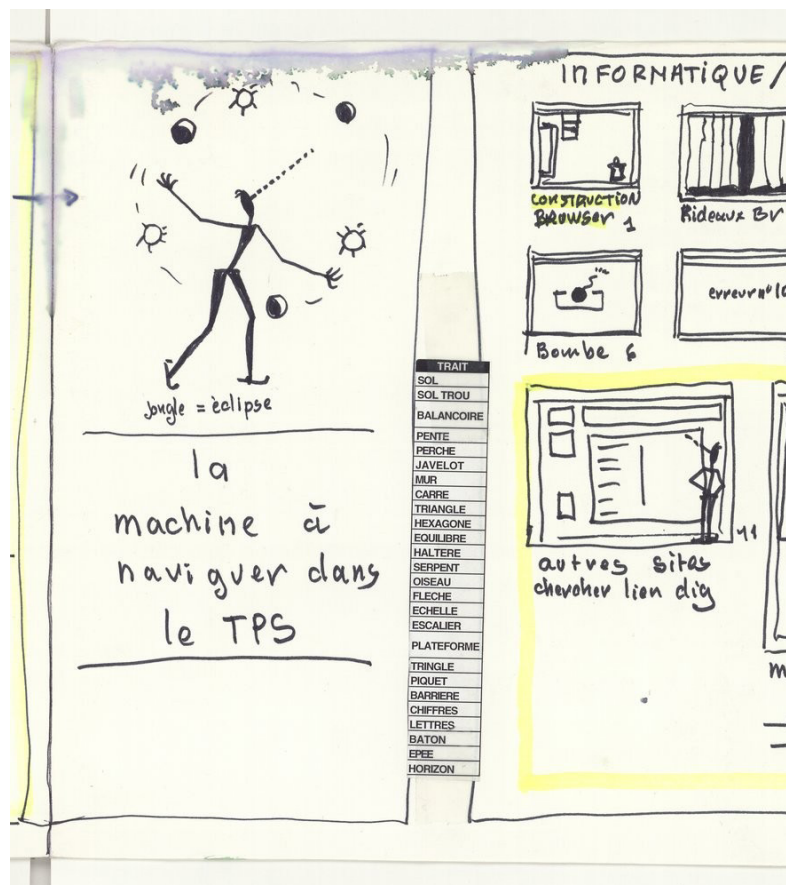 jongle = èclipse
la
machine à
naviguer dans
le TPS
TRAIT
SOL
SOL TROU
BALANCOIRE
PENTE
PERCHE
JAVELOT
MUR
CARRE
TRIANGLE
HEXAGONE
EQUILIBRE
HALTERE
SERPENT
OISEAU
FLECHE
ECHELLE
ESCALIER
PLATEFORME
TRINGLE
PIQUET
BARRIERE
CHIFFRES
LETTRES
BATON
EPEE
HORIZON
INFORMATIQUE/
CONSTRUCTION
BROWSER 1
Rideaux Br
Bombe 6
erreur n°10
11
autres sites
chercher lien dig
m